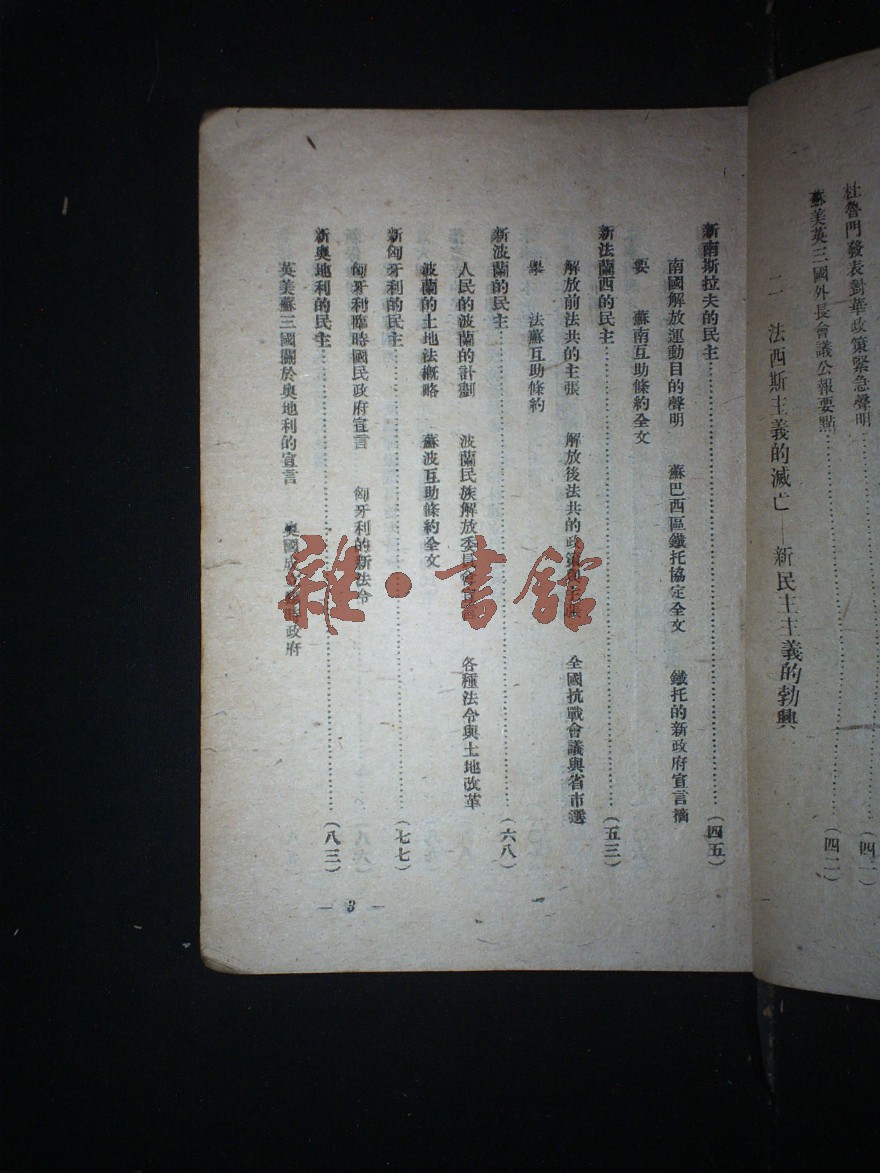 杜魯門發表對華政策緊急聲明………(四一)
蘇美英三國外長會議公報要點………(四二)
二 法西斯主義的滅亡——新民主主義的勃興
新南斯拉夫的民主………(四五)
南國解放運動目的聲明 蘇巴西區鐵托協定全文 鐵托的新政府宣言摘
要 蘇南互助條約全文
新法蘭西的民主………(五三)
解放前法共的主張 解放後法共的政策 全國抗戰會議與省市選
舉 法蘇互助條約
新波蘭的民主………(六八)
人民的波蘭的計劃 波蘭民族解放委員會宣言 各種法令與土地改革
波蘭的土地法概略 蘇波互助條約全文
新匈牙利的民主………(七七)
匈牙利臨時國民政府宣言 匈牙利的新法令
新奧地利的民主………(八三)
英美蘇三國關於奧地利的宣言 奧國成立臨時政府
— 3 —
雜·書館